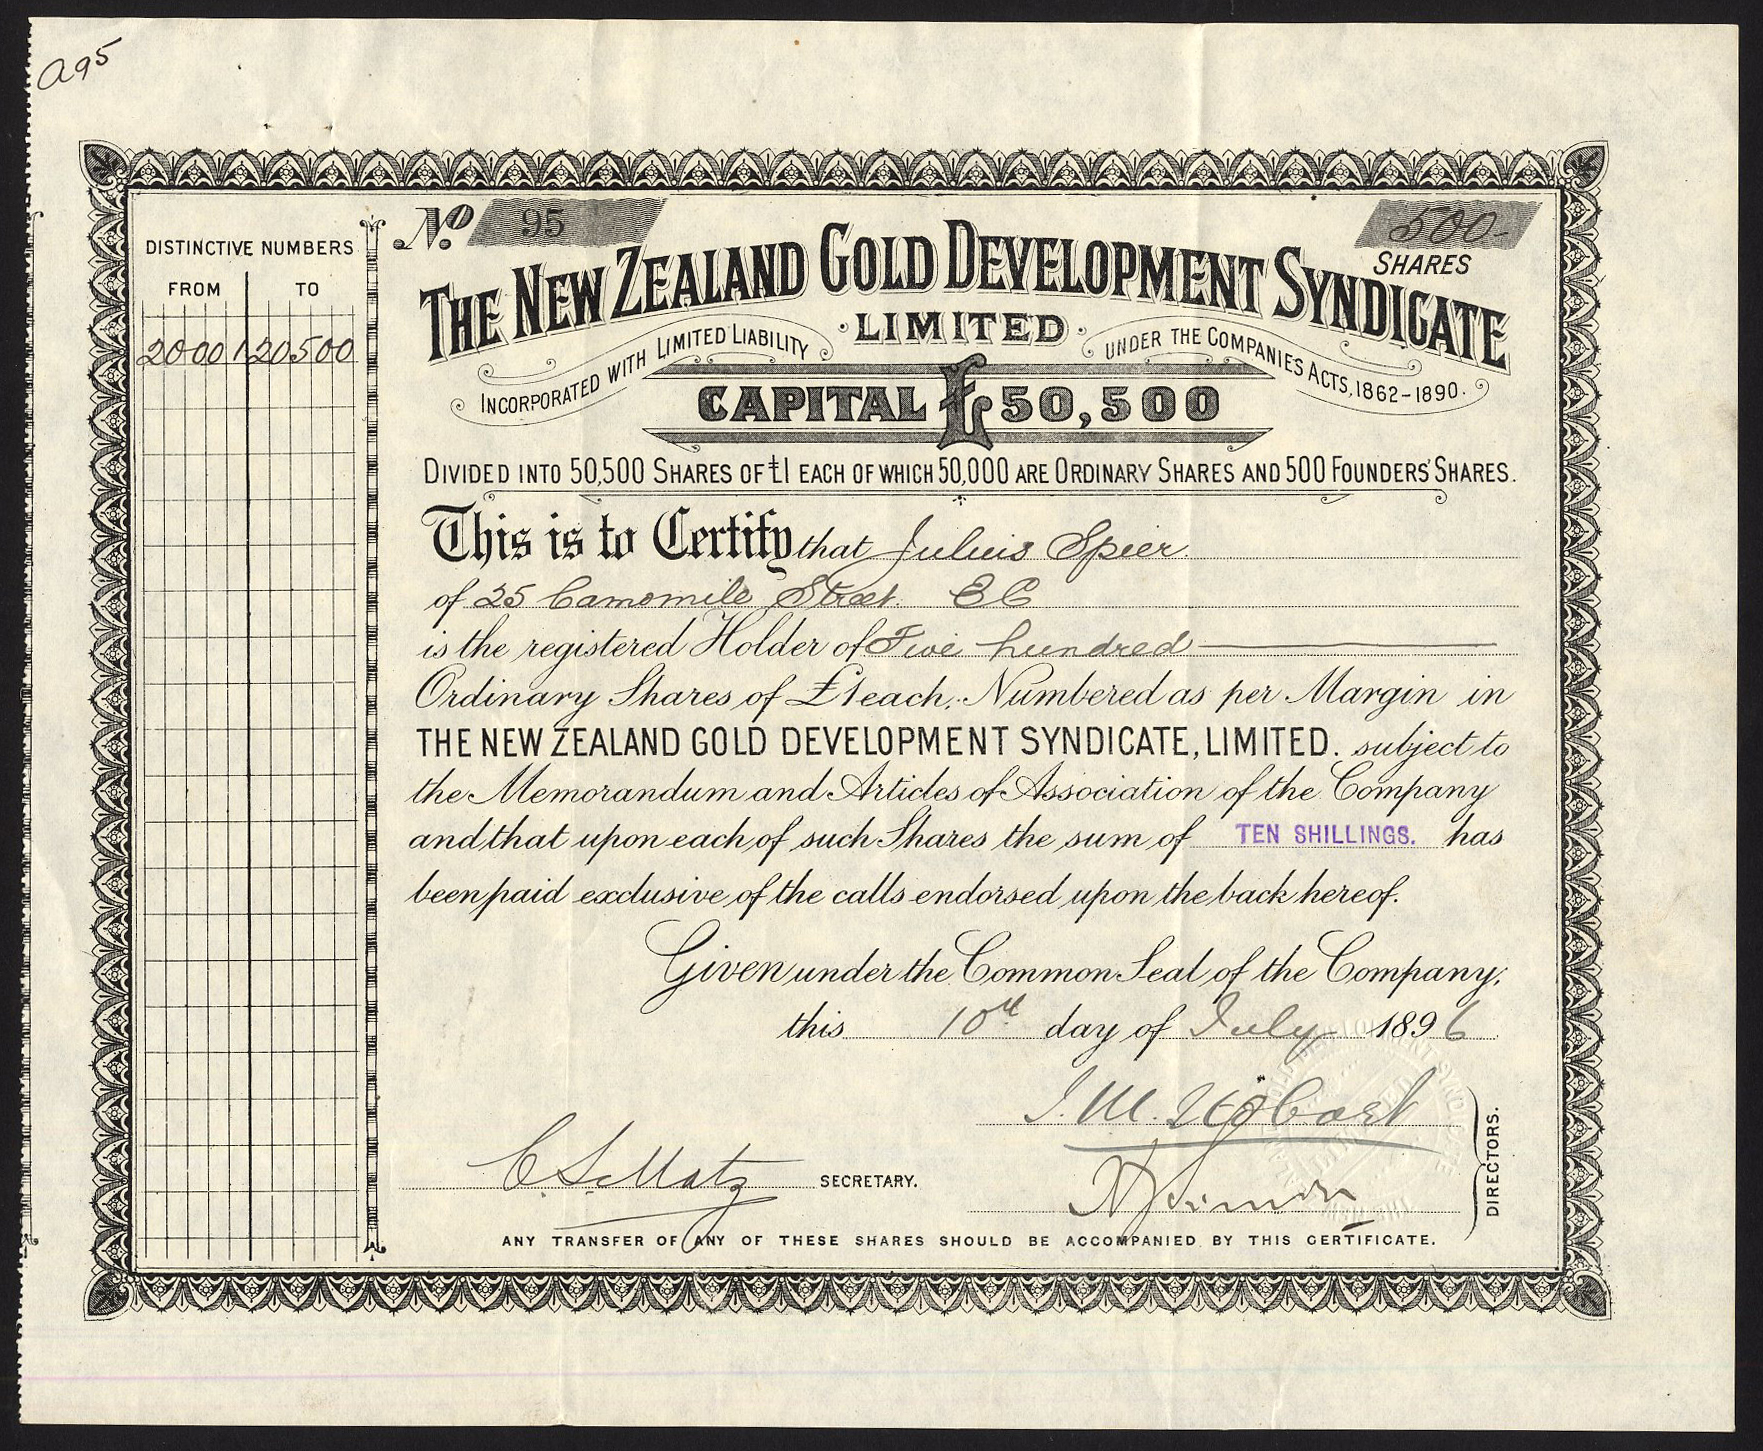 a95
No. 95
500-
SHARES
DISTINCTIVE NUMBERS
FROM TO
20001 20500
THE NEW ZEALAND GOLD DEVELOPMENT SYNDICATE
LIMITED
INCORPORATED WITH LIMITED LIABILITY UNDER THE COMPANIES ACTS, 1862-1890.
CAPITAL £50,500
DIVIDED INTO 50,500 SHARES OF £1 EACH OF WHICH 50,000 ARE ORDINARY SHARES AND 500 FOUNDERS' SHARES.
This is to Certify that Julius Spier
of 25 Camomile Street. E C
is the registered Holder of Five hundred
Ordinary Shares of £1 each, Numbered as per Margin in
THE NEW ZEALAND GOLD DEVELOPMENT SYNDICATE, LIMITED. subject to
the Memorandum and Articles of Association of the Company
and that upon each of such Shares the sum of TEN SHILLINGS. has
been paid exclusive of the calls endorsed upon the back hereof.
Given under the Common Seal of the Company,
this 10th day of July 1896
J. M. Hobart
C. S. Matz SECRETARY.
DIRECTORS.
ANY TRANSFER OF ANY OF THESE SHARES SHOULD BE ACCOMPANIED BY THIS CERTIFICATE.